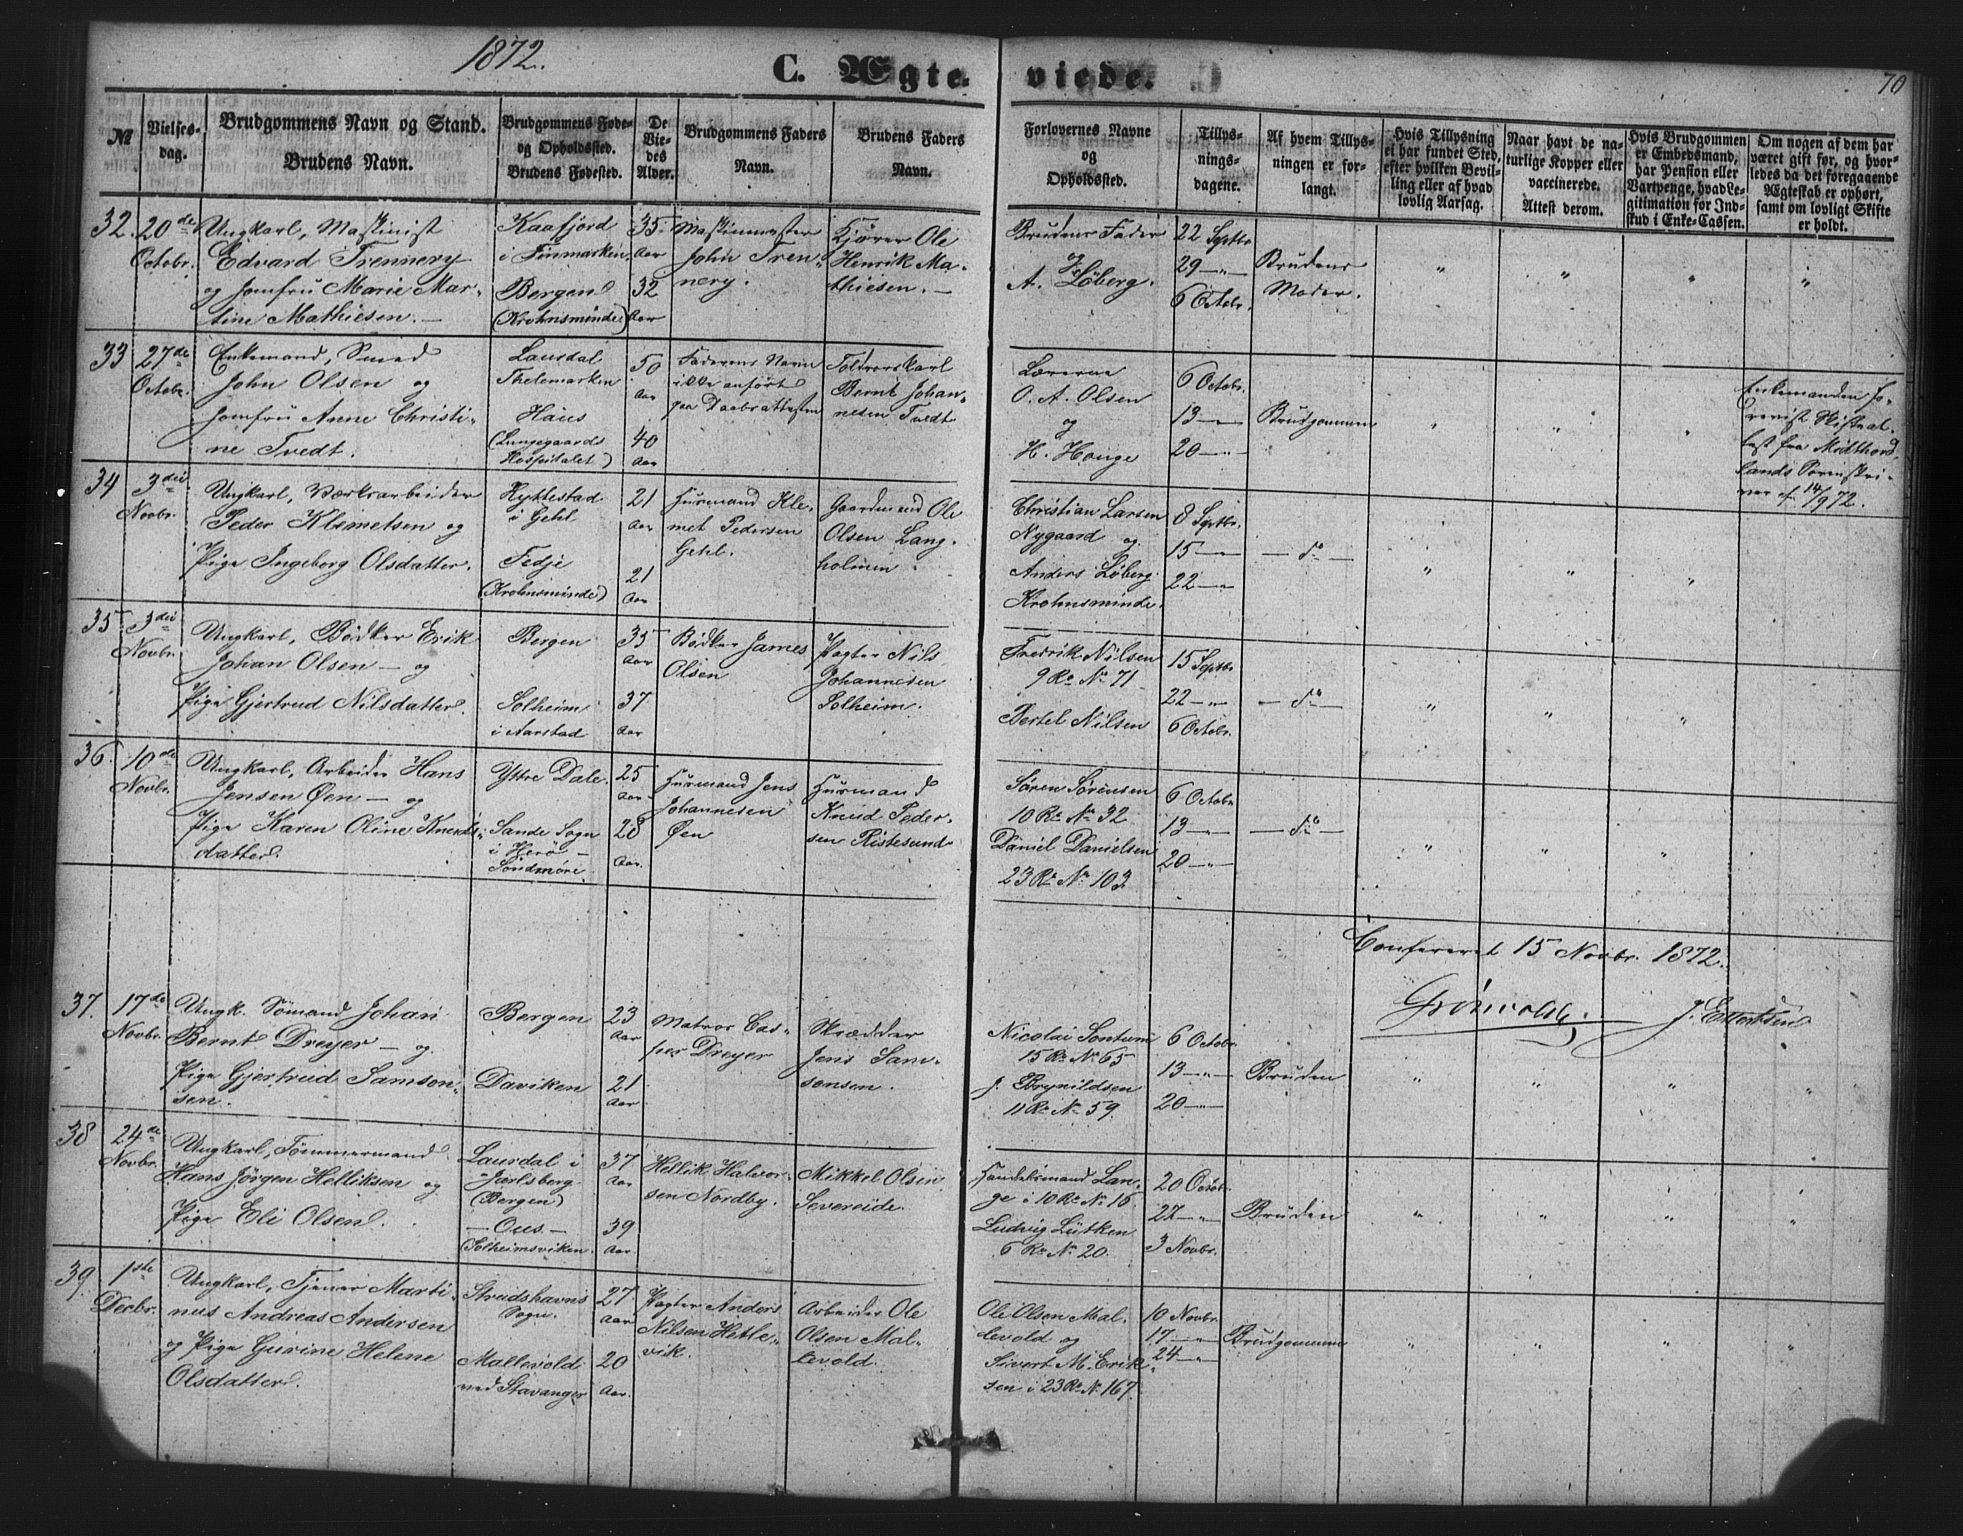 1872.
C. Ægteviede.
70
№
Vielses-
dag.
Brudgommens Navn og Stand.
Brudens Navn.
Brudgommens Føde-
og Opholdssted.
Brudens Fødested.
De
Vie-
des
Alder.
Brudgommens Faders
Navn.
Brudens Faders
Navn.
Forlovernes Navne
og
Opholdssted.
Tillys-
nings-
dagene.
Af hvem Tillys-
ningen er for-
langt.
Hvis Tillysning
ei har fundet Sted,
efter hvilken Bevil-
ling eller af hvad
lovlig Aarsag.
Naar havt de na-
turlige Kopper eller
vaccinerede.
Attest derom.
Hvis Brudgommen
er Embedsmand,
har Pension eller
Vartpenge, hvad Le-
gitimation for Ind-
skud i Enke-Cassen.
Om nogen af dem har
været gift før, og hvor-
ledes da det foregaaende
Ægteskab er ophørt,
samt om lovligt Skifte
er holdt.
32.
20de
Octobr.
Ungkarl, Maskinist
Edvard Trennery
og Jomfru Marie Mar-
tine Mathiesen. —
Kaafjord
i Finmarken
Bergen
(Krohnsminde)
35
Aar
32
Aar
Maskinmester
John Tren-
nery.
Kjører Ole
Henrik Ma-
thiesen. —
Brudens Fader
A. Løberg.
22 Septbr
29 — " —
6 Octobr.
Brudens
Moder.
" " " "
33
27de
Octobr.
Enkemand, Smed
John Olsen og
Jomfru Anne Christi-
ne Tvedt.
Laurdal
Thelemarken
Haus
(Lungegaards
Hospitalet)
50
Aar
40
Aar
Faderens Navn
ikke anført
paa Daabsattesten
Toldrorskarl
Bernt Johan-
nesen Tvedt
Lærerne
O. A. Olsen
og
H. Houge
6 Octobr.
13 — " —
20 — " —
Brudgommen
" " "
Enkemanden fo-
revist Skifteat-
test fra Midthord-
lands Sorenskri-
ver af 14/9 72.
34
3die
Novbr.
Ungkarl, Værksarbeider
Peder Klemetsen og
Pige Ingeborg Olsdatter.
Hyllestad
i Gehl
Fedje
(Krohnsminde)
21
Aar
21
Aar
Huusmand Kle-
met Pedersen
Gehl.
Gaardmand Ole
Olsen Lang-
holmen
Christian Larsen
Nygaard og
Anders Løberg
Krohnsminde.
8 Septbr.
15 — " —
22 — " —
— do —
" " "
35
3die
Novbr.
Ungkarl, Bødker Erik
Johan Olsen — og
Pige Gjertrud Nilsdatter.
Bergen
Solheim
i Aarstad
35
Aar
37
Aar
Bødker James
Olsen
Pagter Nils
Johannesen
Solheim.
Fredrik Nilsen
9 Ro No 71
Bertel Nilsen
15 Septbr
22 — " —
6 Octobr.
— do —
" " "
36.
10de
Novbr.
Ungkarl, Arbeider Hans
Jensen Øen — og
Pige Karen Oline Knuds-
datter.
Ytre Dale.
Sande Sogn
i Herø —
Søndmøre.
25
Aar
28
Aar.
Huusmand Jens
Johannesen
Øen
Huusmand
Knud Peder-
sen Ristesund
Søren Sørensen
10 Ro No 32
Daniel Danielsen
23 Ro No 103
6 Octobr
13 — " —
20 — " —
— do —
" " "
Confereret 15 Novbr. 1872.
37.
17de
Novbr.
Ungk. Sømand Johan
Bernt Dreyer — og
Pige Gjertrud Samson-
sen.
Bergen
Daviken
23
Aar
21
Aar
Matros Cas-
per Dreyer
Skrædder
Jens Sam-
sonsen.
Nicolai Sontum
15 Ro No 65
J. Brynildsen
11 Ro No 59
6 Octobr.
13 — " —
20 — " —
Bruden
" " " "
38
24de
Novbr.
Ungkarl, Tømmermand
Hans Jørgen Helliksen og
Pige Eli Olsen.
Laurdal i
Jarlsberg
(Bergen)
— Ous —
(Solheimsviken.
37
Aar
39
Aar
Hellik Halvor-
sen Nordby.
Mikkel Olsen
Severeide.
Handelsmand Lan-
ge i 10 Ro No 16
Ludvig Lütken
6 Ro No 20.
20 Octobr.
27 — " —
3 Novbr.
Bruden
" " " "
39.
1ste
Decbr.
Ungkarl, Tjener Marti-
nus Andreas Andersen
og Pige Gurine Helene
Olsdatter.
Strudshavns
Sogn.
Mallevold
ved Stavanger
27
Aar
20
Aar.
Pagter Anders
Nilsen Hetle-
vik.
Arbeider Ole
Olsen Mal-
levold.
Ole Olsen Mal-
levold og
Sivert M. Erik-
sen i 23 Ro No 167.
10 Novbr.
17 — " —
24 — " —
Brudgommen
" " " "